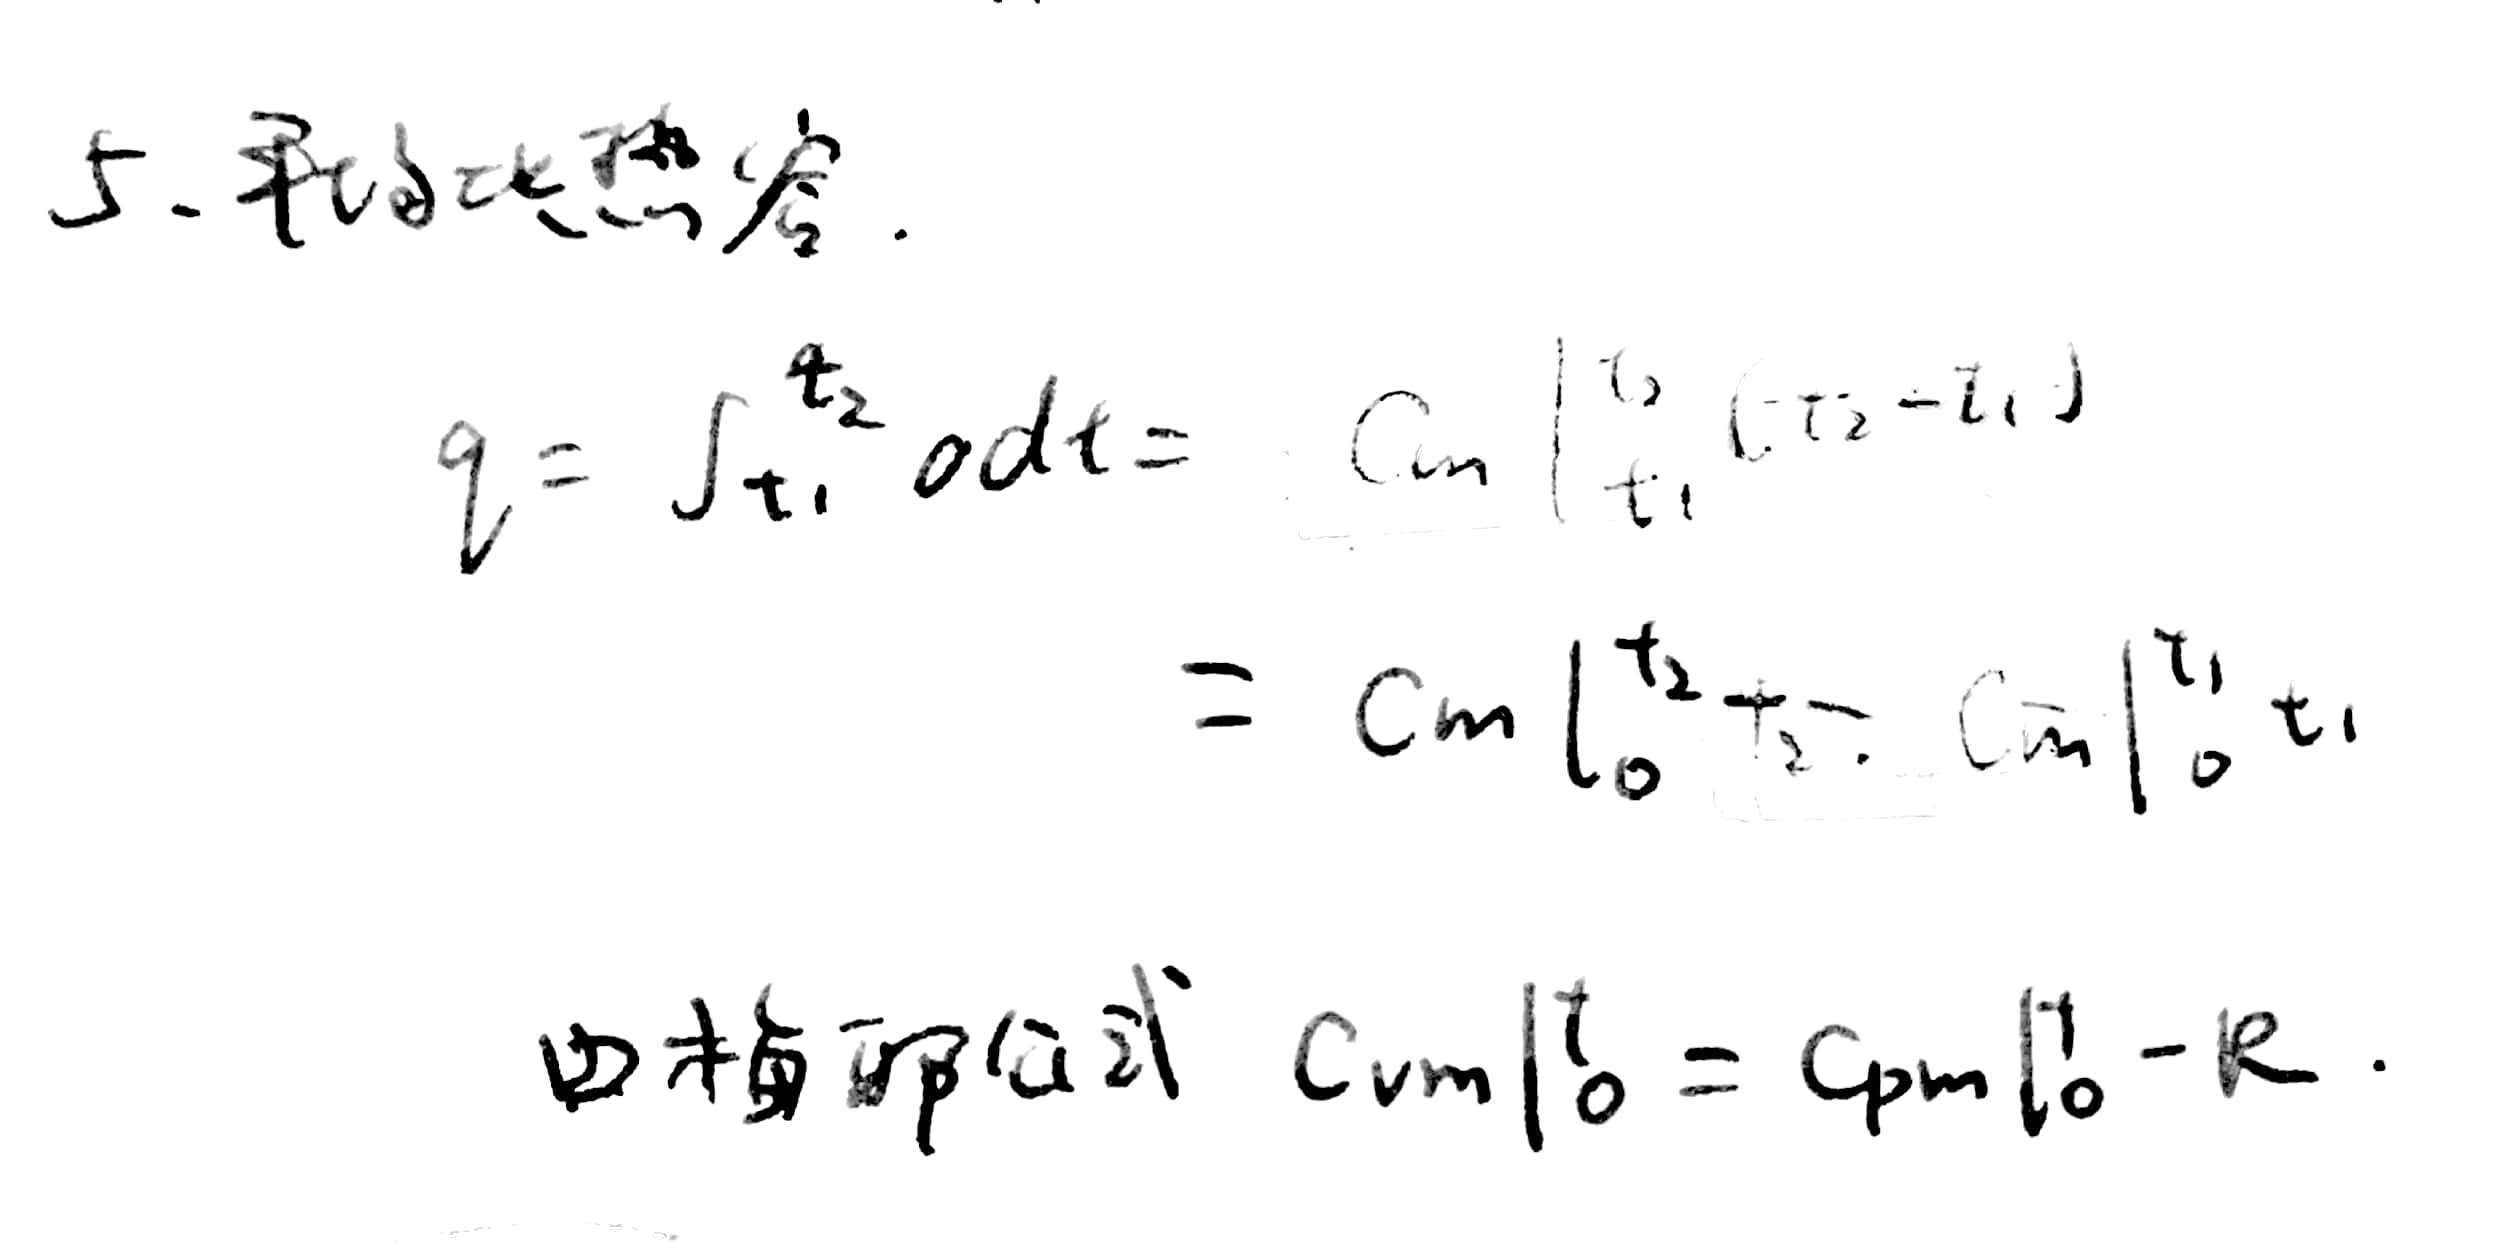 5. 平均比热容.
q = ∫_{t1}^{t2} c dt = Cm|_{t1}^{t2} (t2 - t1)
= Cm|_0^{t2} t2 - Cm|_0^{t1} t1
由梅耶公式 Cvm|_0^t = Cpm|_0^t - R.